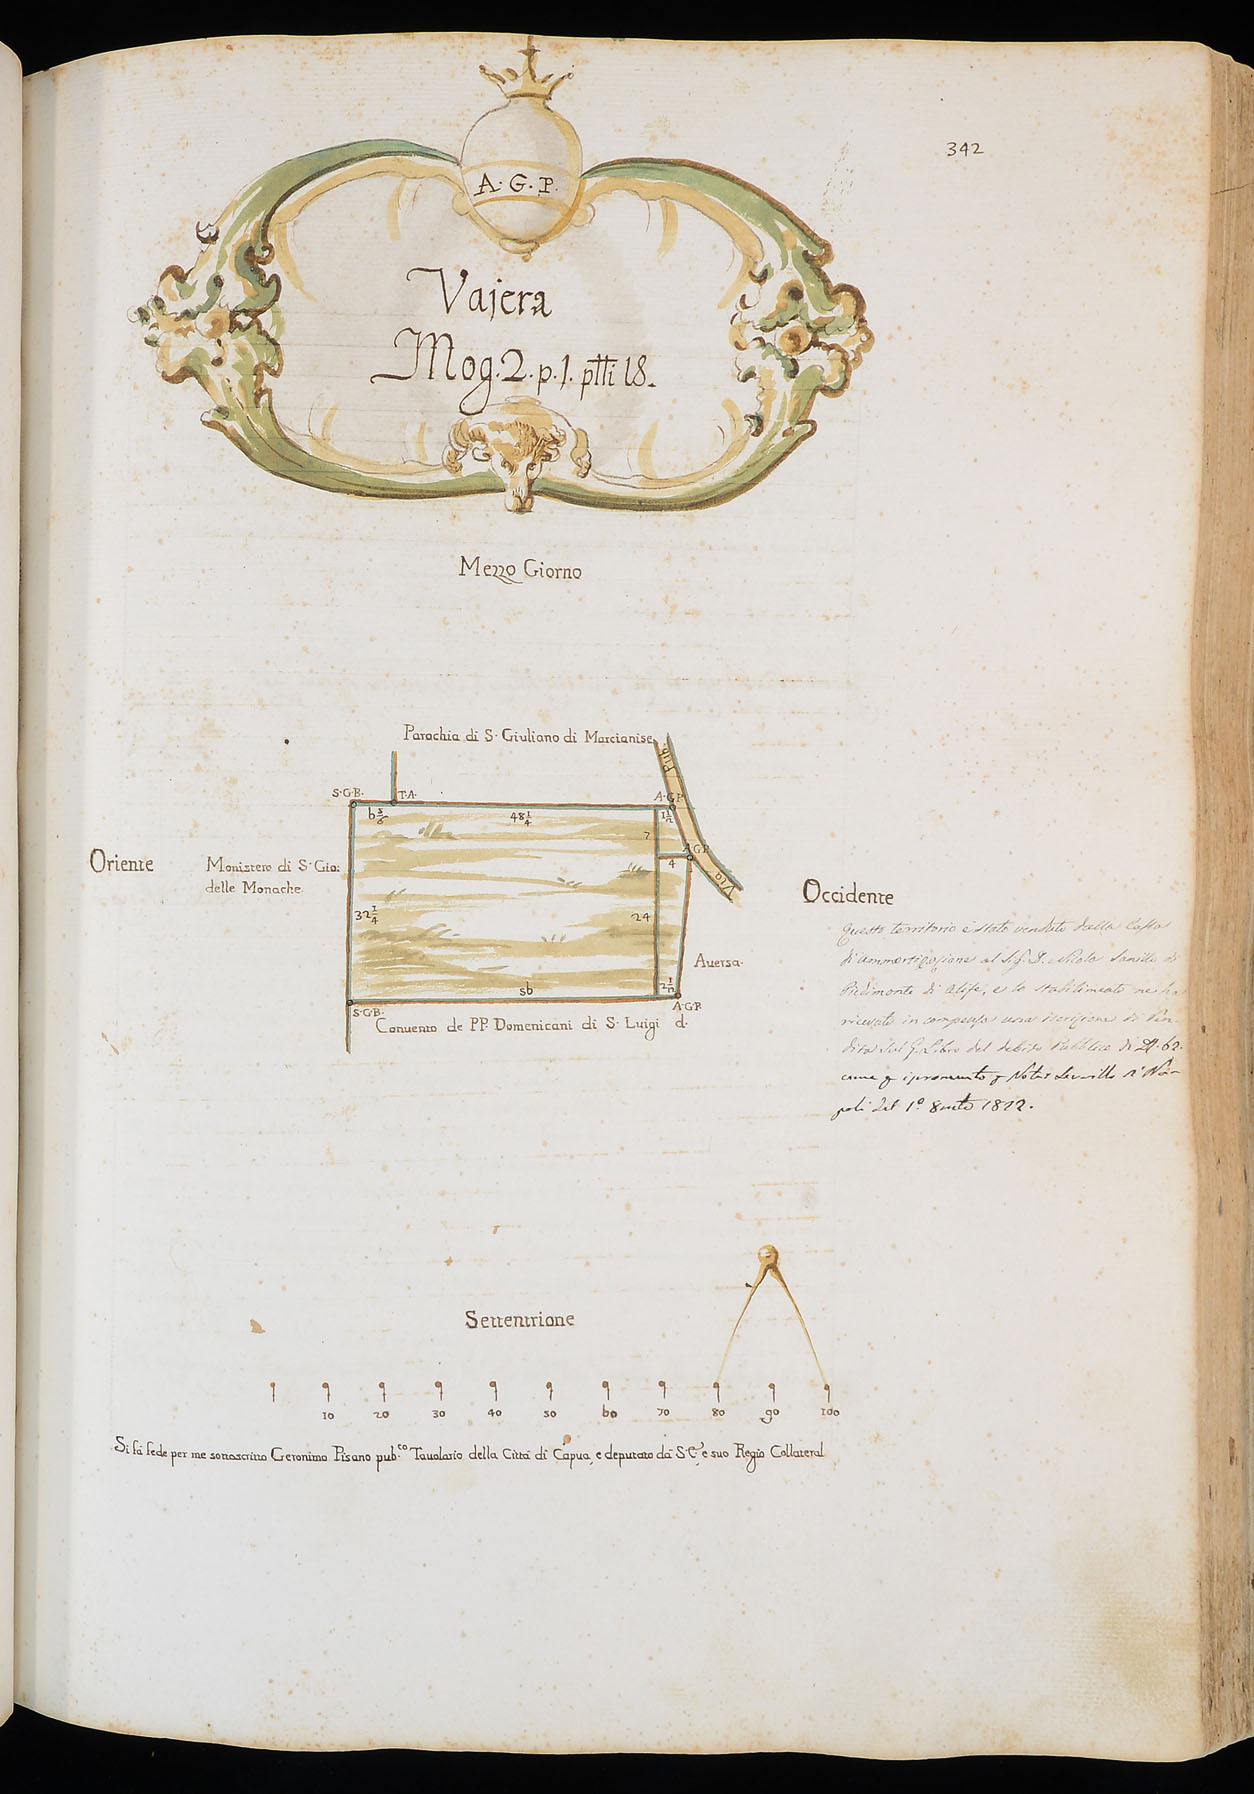 342
A. G. P.
Vajera
Mog. 2. p. 1. ptti 18.
Mezzo Giorno
Parochia di S. Giuliano di Marcianise
Via Pub.
S.G.B. T.A. A.G.P.
6 5/6 48 1/4 1 1/2
7
A.G.P.
4
Oriente
Monistero di S. Gio:
delle Monache
32 1/4
24
Occidente
Questo territorio è stato venduto dalla Cassa
di ammortizazione al Sig. D. Nicola di
Piedimonte di Alife, e lo stabilimento ne ha
ricevuto in compenso una iscrizione di Ren-
dita sul G. Libro del debito Pubblico di 62.
come Notar di Na-
poli del 1º 1812.
Aversa.
56 2 1/2
S.G.B. A.G.P.
Convento de PP. Domenicani di S. Luigi d.
Settentrione
10 20 30 40 50 60 70 80 90 100
Si fà fede per me sottoscritto Geronimo Pisano pub.co Tavolario della Città di Capua, e deputato da S. E. e suo Regio Collateral